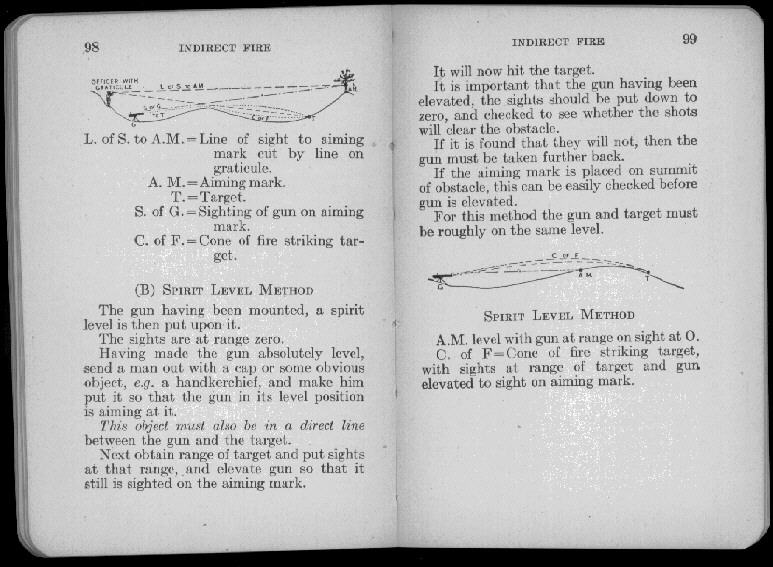 98
INDIRECT FIRE
OFFICER WITH
GRATICULE
L of S to A M
A M
S of G
C of F
T
G
L. of S. to A.M.=Line of sight to aiming
mark cut by line on
graticule.
A. M.=Aiming mark.
T.=Target.
S. of G.=Sighting of gun on aiming
mark.
C. of F.=Cone of fire striking tar-
get.
(B) SPIRIT LEVEL METHOD
The gun having been mounted, a spirit
level is then put upon it.
The sights are at range zero.
Having made the gun absolutely level,
send a man out with a cap or some obvious
object, e.g. a handkerchief, and make him
put it so that the gun in its level position
is aiming at it.
This object must also be in a direct line
between the gun and the target.
Next obtain range of target and put sights
at that range, and elevate gun so that it
still is sighted on the aiming mark.
INDIRECT FIRE
99
It will now hit the target.
It is important that the gun having been
elevated, the sights should be put down to
zero, and checked to see whether the shots
will clear the obstacle.
If it is found that they will not, then the
gun must be taken further back.
If the aiming mark is placed on summit
of obstacle, this can be easily checked before
gun is elevated.
For this method the gun and target must
be roughly on the same level.
C of F
G
A M
T
SPIRIT LEVEL METHOD
A.M. level with gun at range on sight at O.
C. of F=Cone of fire striking target,
with sights at range of target and gun
elevated to sight on aiming mark.